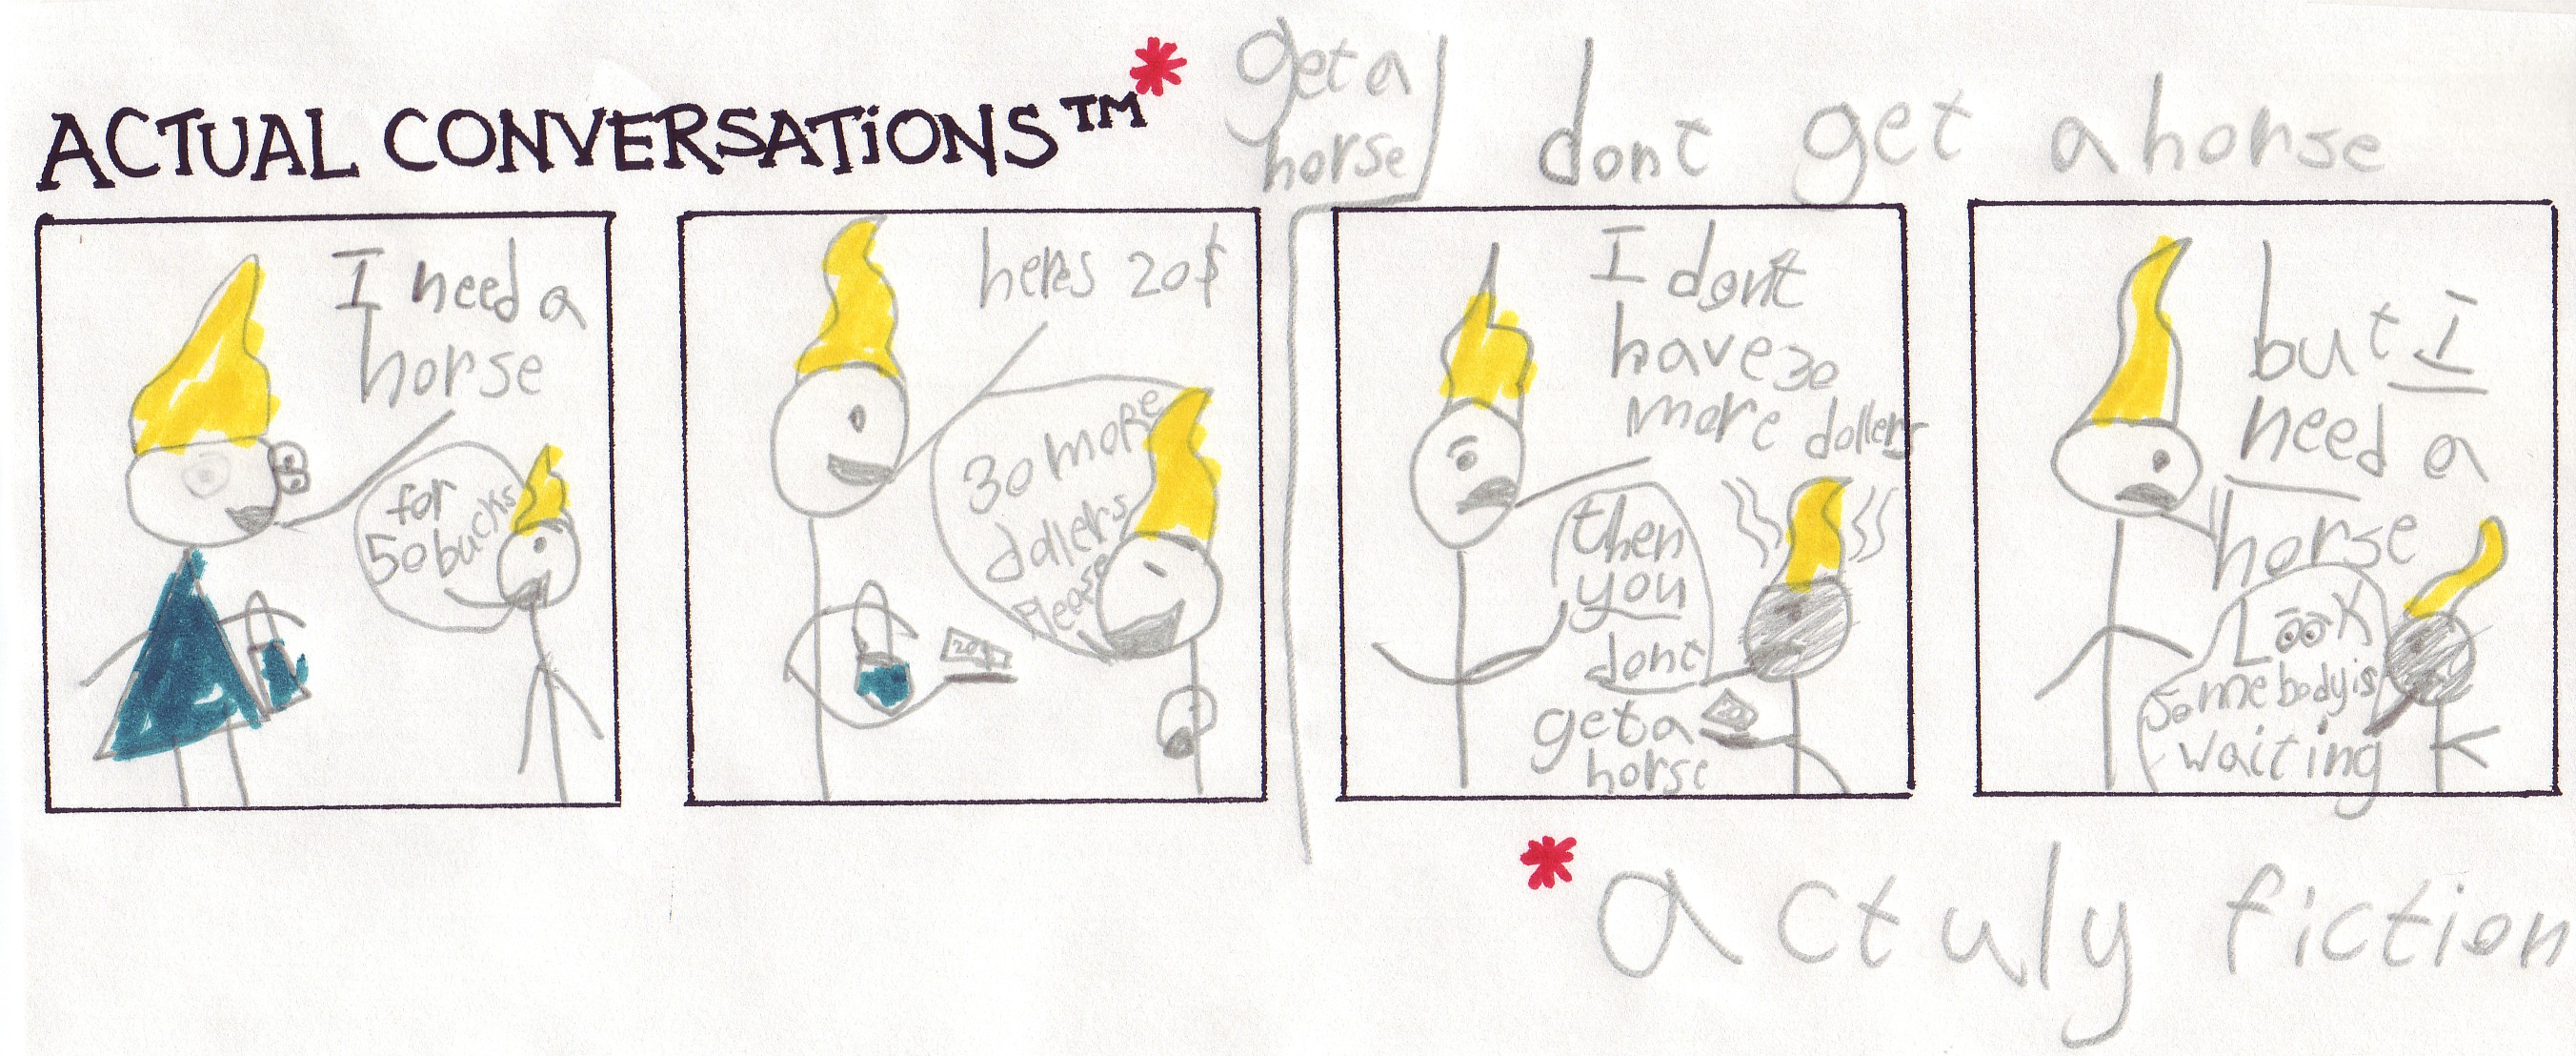 ACTUAL CONVERSATIONS™*
get a
horse
dont get a horse
I need a
horse
for
50 bucks
heres 20$
30 more
dollers
Please
20$
I dont
have 30
more dollers
then
you
dont
get a
horse
20
but I
need a
horse
Look
Somebody is
waiting
* actuly fiction